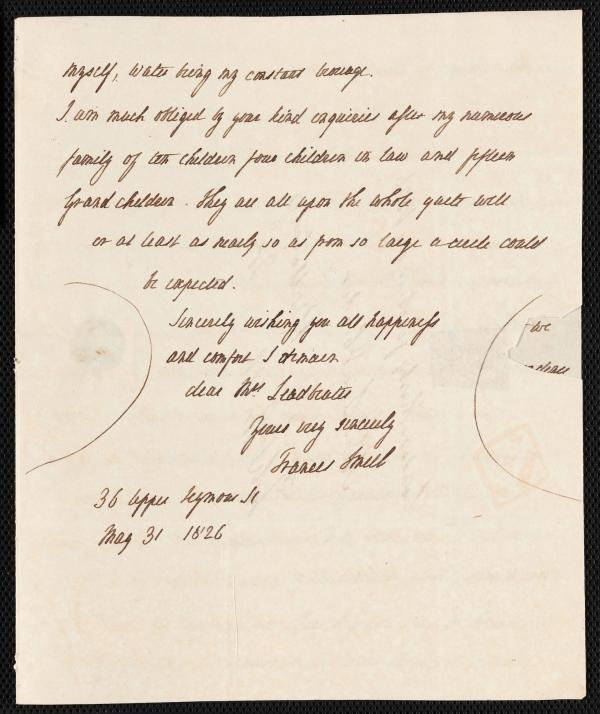 myself, water being my constant beverage.
I am much obliged by your kind enquiries after my numerous
family of ten children four children in law and fifteen
Grand children. They are all upon the whole quite well
or at least as nearly so as from so large a circle could
be expected.
Sincerely wishing you all happiness
and comfort I remain
dear Mrs Leadbeater
Yours very sincerely
Frances Smith
36 Upper Seymour St
May 31 1826